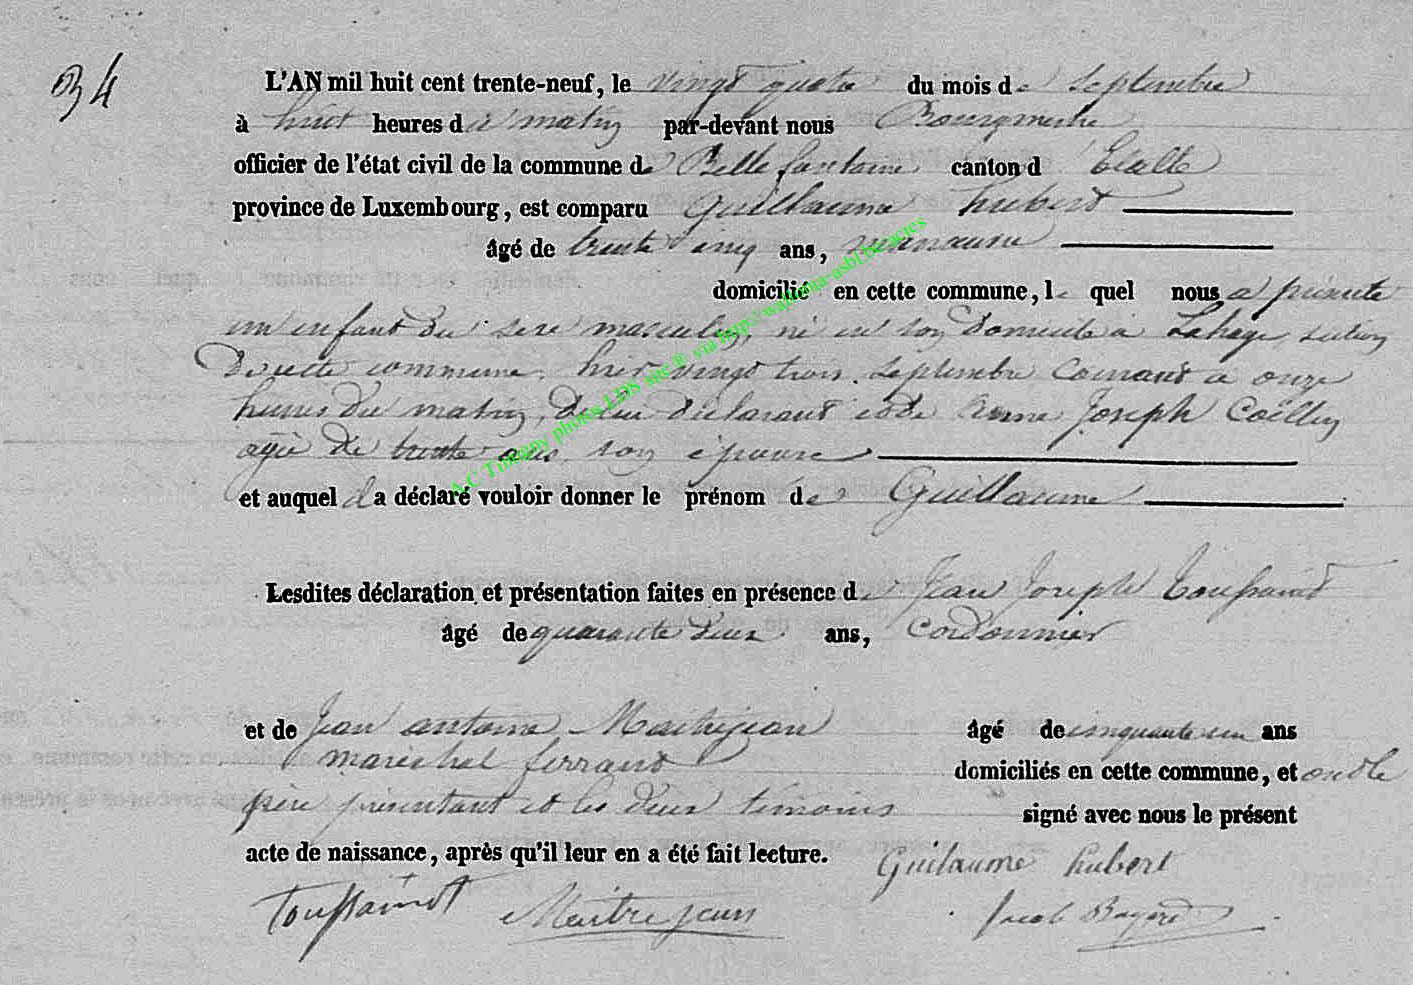 34
L'AN mil huit cent trente-neuf, le vingt quatre du mois de Septembre
à huit heures du matin par-devant nous Bourgmestre
officier de l'état civil de la commune de Bellefontaine canton d' Etalle
province de Luxembourg, est comparu Guillaume hubert
âgé de trente cinq ans, manoeuvre
domicilié en cette commune, le quel nous a présenté
un enfant du sexe masculin, né en son domicile à Lahage, section
de cette commune, hier vingt trois Septembre Courant à onze
heures du matin, de lui déclarant et de Anne Joseph Collin
agée de trente ans, son épouse
et auquel il a déclaré vouloir donner le prénom de Guillaume
Lesdites déclaration et présentation faites en présence de Jean Joseph Toussaint
âgé de quarante deux ans, Cordonnier
et de Jean antoine Maitrejean âgé de cinquante un ans
maréchal ferrant domiciliés en cette commune, et ont le
père présentant et les deux témoins signé avec nous le présent
acte de naissance, après qu'il leur en a été fait lecture.
Guilaume hubert
Toussaint Maitrejean Jacob
A.C Tintigny photos LDS site ® via http://wallonia-asbl.be/actes